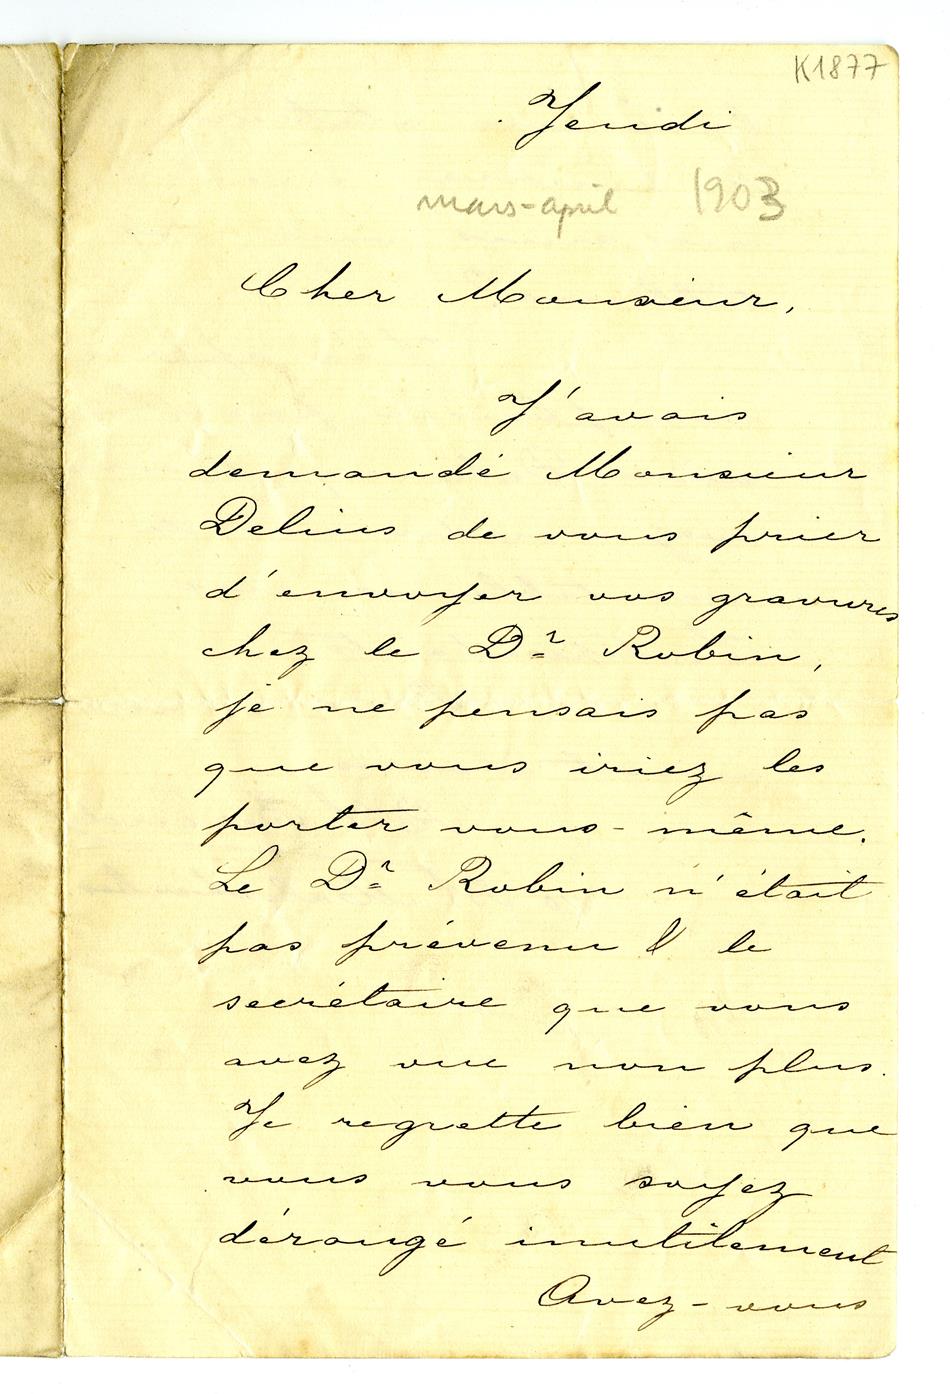 K1877
Jeudi
mars-april 1903
Cher Monsieur,
J'avais
demandé Monsieur
Delius de vous prier
d'envoyer vos gravures
chez le Dr Robin,
je ne pensais pas
que vous iriez les
porter vous-même.
Le Dr Robin n'était
pas prévenu & le
secrétaire que vous
avez vue non plus.
Je regrette bien que
vous vous soyez
dérangé inutilement
Avez-vous